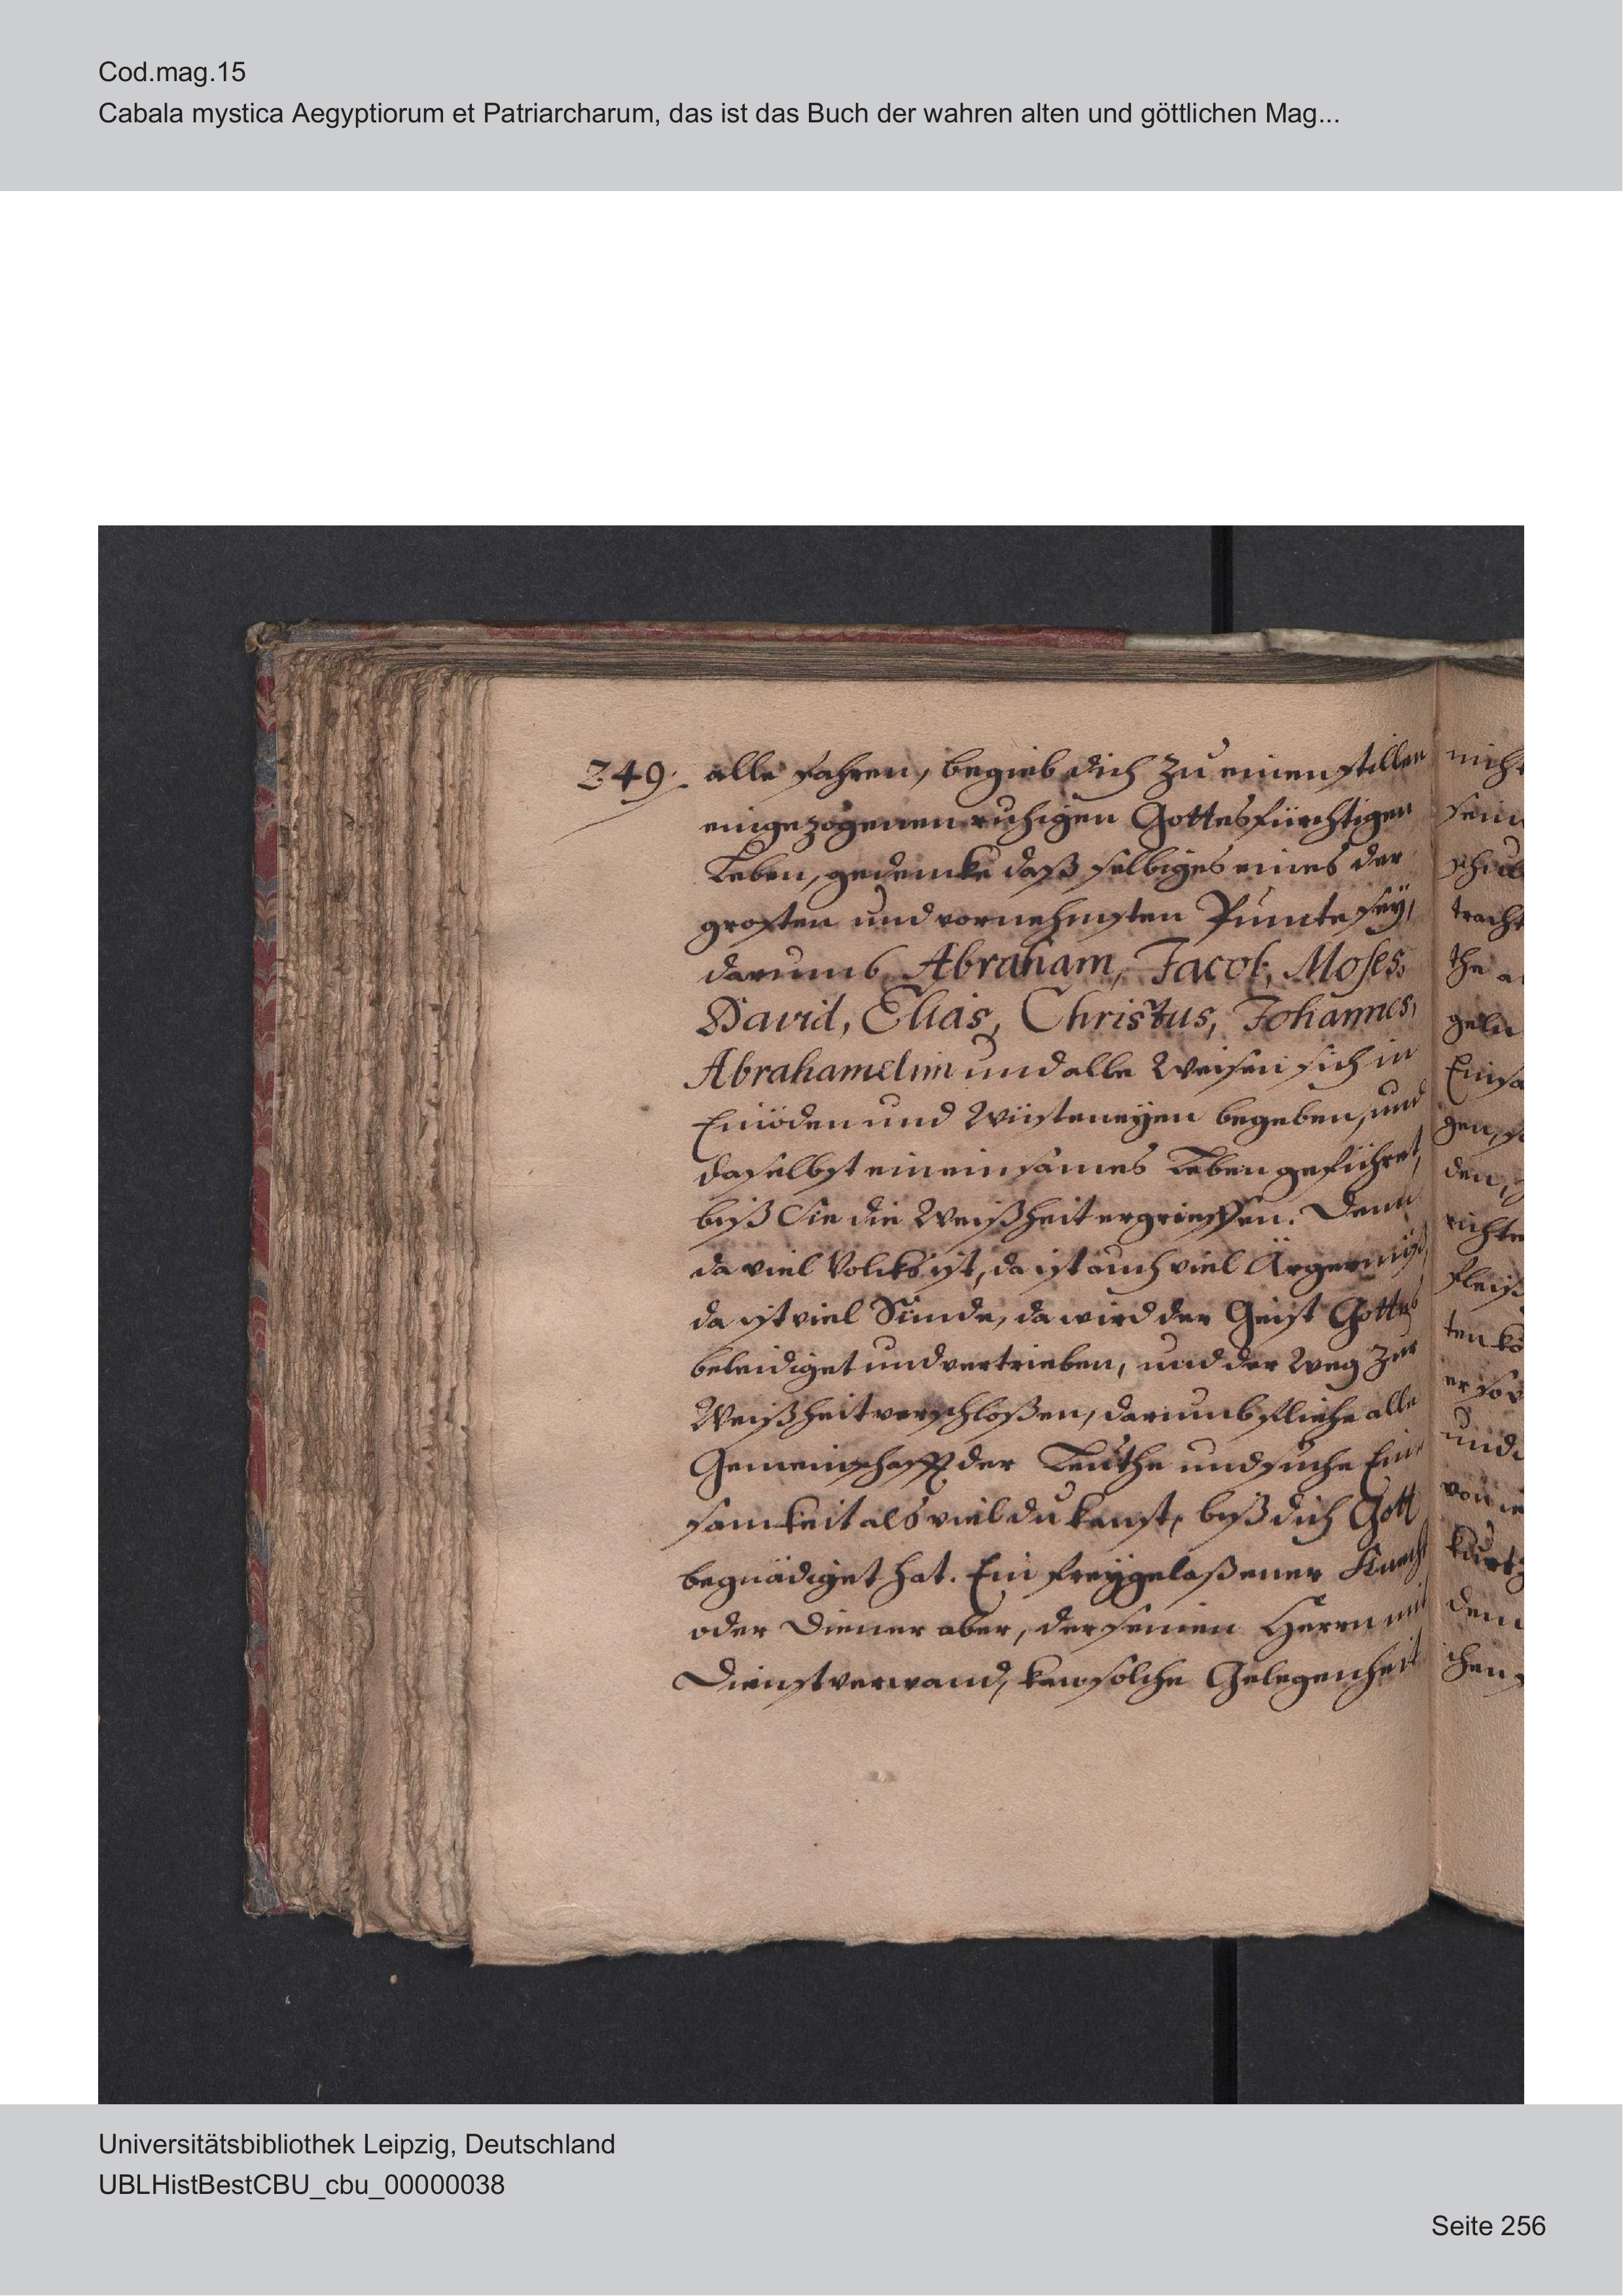 Cod.mag.15
Cabala mystica Aegyptiorum et Patriarcharum, das ist das Buch der wahren alten und göttlichen Mag...
249. alle fahren, begieb dich zu einen stillen
eingezogenen ruhigen Gottesfürchtigen
Leben, gedencke daß selbiges eines der
grosten und vornehmsten Puncte seÿ,
darumb Abraham, Jacob, Moses,
David, Elias, Christus, Johannes,
Abrahamelim und alle Weisen sich in
Einöden und Wüsteneÿen begeben, und
daselbst ein einsames Leben geführet,
biß Sie die Weißheit ergrieffen. Denn
da viel Volcks ist, da ist auch viel Ärgernüß,
da ist viel Sünde, da wird der Geist Gottes
beleidiget und vertrieben, und der Weg zur
Weißheit verschloßen, darumb fliehe alle
Gemeinschafft der Leuthe und suche Ein
samkeit als viel du kanst, biß dich Gott
begnädiget hat. Ein freÿgelaßener Knecht
oder Diener aber, der seinen Herrn mit
Dienst verwand, kan solche Gelegenheit
nicht
sein
tracht
the
geln
Einsa
gen,
den,
richten
fleiß
ten
er
und
von
kurtz
dem
chen
Universitätsbibliothek Leipzig, Deutschland
UBLHistBestCBU_cbu_00000038
Seite 256